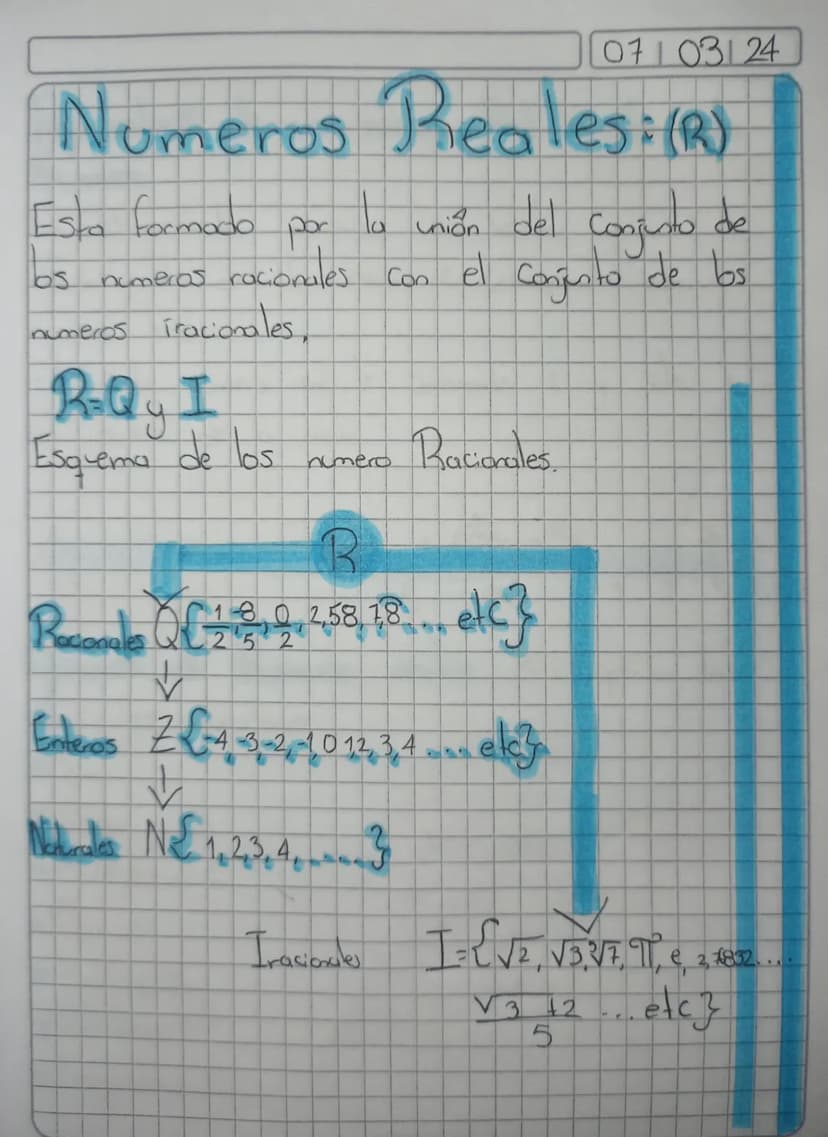 07 | 03 | 24
Numeros Reales: (R)
Esta formado por la unión del conjunto de
los numeros racionales con el conjunto de los
numeros iracionales,
R=Q y I
Esquema de los numero Racionales.
R
Racionales Q{1/2, -8/5, 0/2, 2,58, 7,8... etc}
Enteros Z{-4,-3,-2,-1,0 1,2,3,4 .... etc}
Naturales N{1,2,3,4,......}
Iracionales I={√2, √3, ∛7, π, e,
√3 +2 / 5 ... etc}